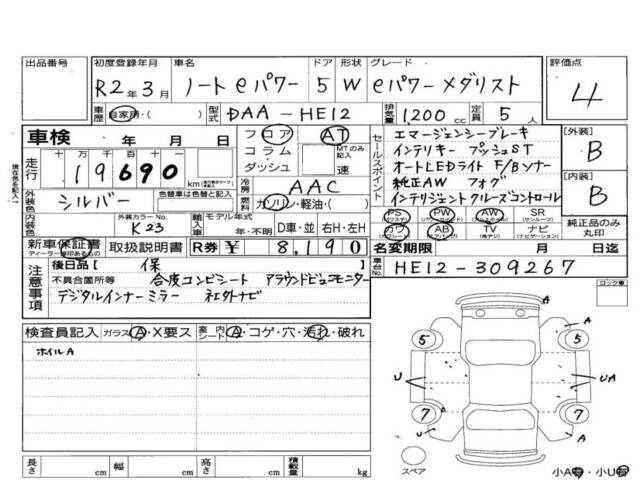 出品番号
初度登録年月 R2年3月
車名 ノート eパワー
ドア 5
形状 W
グレード eパワーメダリスト
評価点 4
車歴 自家用・( )
型式 DAA-HE12
排気量 1,200 cc
定員 5人
車検 年 月 日
フロア AT
コラム MTのみ記入
ダッシュ 速
走行 十万千百十 19690 km
セールスポイント
エマージェンシーブレーキ
インテリキー プッシュST
オートLEDライト F/Bソナー
純正AW フォグ
インテリジェントクルーズコントロール
[外装] B
[内装] B
現在色を記入
外装色 シルバー
色替車は色替と記入
冷房 AAC
ガソリン・軽油・( )
内装色
外装カラーNo. K23
輸入車 モデル年式 年・不明 D車・並 右H・左H
PS PW AW SR
(パワステ) (パワーウインド) (アルミホイル) (サンルーフ)
カワ AB TV ナビ
(カワシート) (エアバッグ) (純テレビ) (ナビゲーション)
純正品のみ丸印
新車保証書
ディーラー捺印あるもの
取扱説明書
R券 ¥ 8,190
名変期限 月 日迄
注意事項
後日品[ 保 ]
不具合箇所等 合皮コンビシート アラウンドビューモニター
デジタルインナーミラー 社外ナビ
車台No. HE12-309267
ロック車
検査員記入 ガラス A・X要ス 室内シート A・コゲ・穴・汚れ・破れ
ホイルA
A
A
5 5
U UA
7 7
U A
スペア
長さ cm 幅 cm 高さ cm 積載量 kg
小A有・小U有